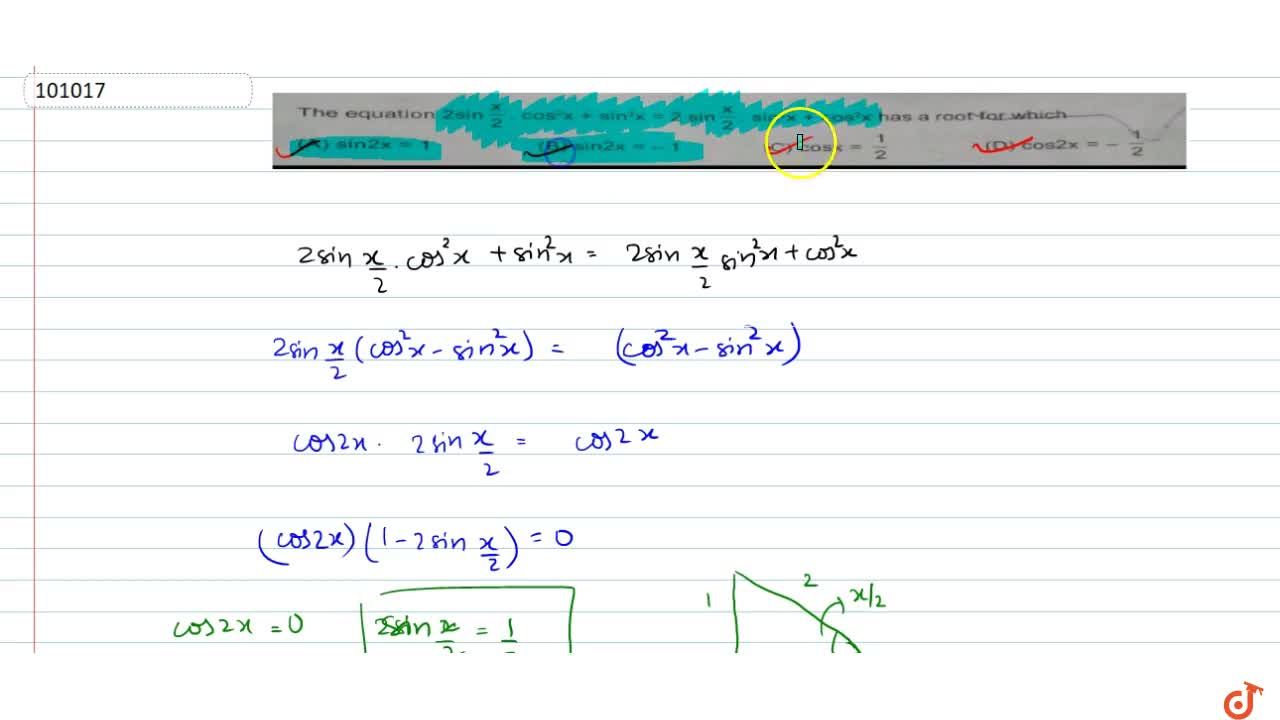 101017
The equation 2sin x/2 . cos²x + sin²x = 2 sin x/2 . sin²x + cos²x has a root for which
(A) sin2x = 1 (B) sin2x = - 1 (C) cosx = 1/2 (D) cos2x = - 1/2
2sin x/2 . cos²x + sin²x = 2sin x/2 sin²x + cos²x
2sin x/2 (cos²x - sin²x) = (cos²x - sin²x)
cos2x . 2sin x/2 = cos2x
(cos2x)(1 - 2sin x/2) = 0
2
1 x/2
cos2x = 0 sin x/2 = 1/